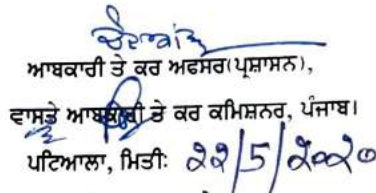 ਆਬਕਾਰੀ ਤੇ ਕਰ ਅਫਸਰ(ਪ੍ਰਸ਼ਾਸਨ),
ਵਾਸਤੇ ਆਬਕਾਰੀ ਤੇ ਕਰ ਕਮਿਸ਼ਨਰ, ਪੰਜਾਬ।
ਪਟਿਆਲਾ, ਮਿਤੀ: 22/5/2020